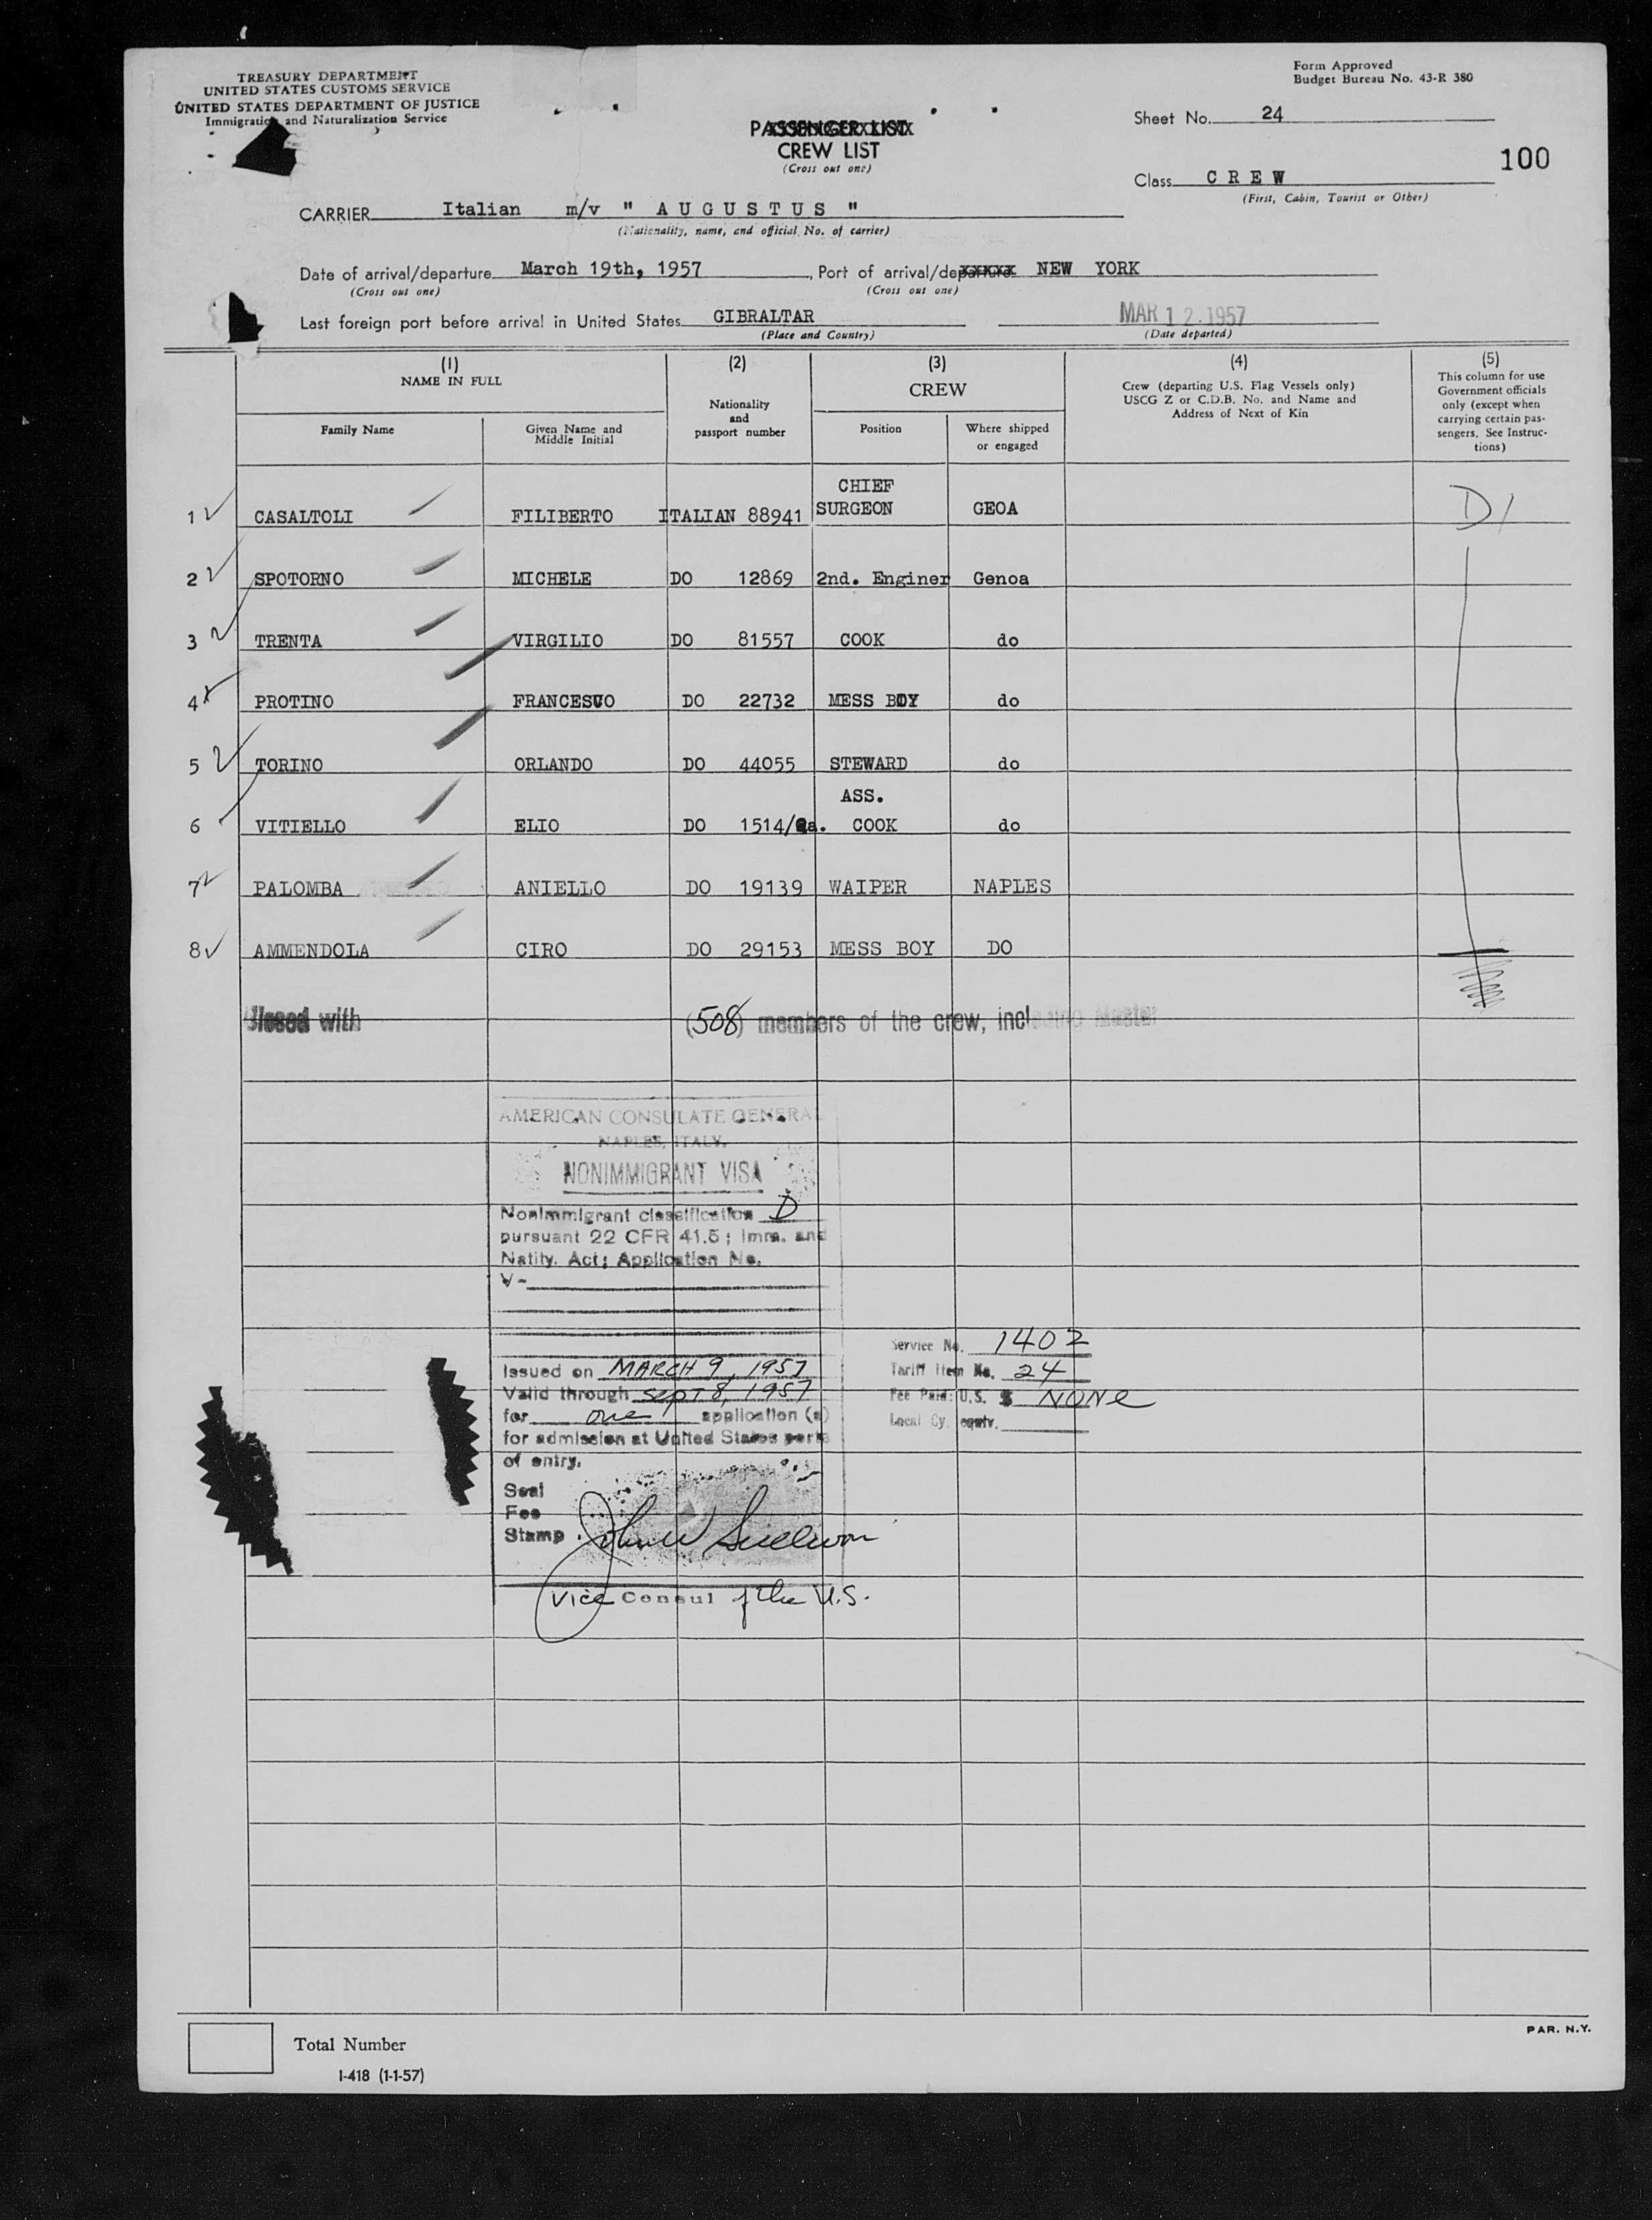 TREASURY DEPARTMENT
UNITED STATES CUSTOMS SERVICE
UNITED STATES DEPARTMENT OF JUSTICE
Immigration and Naturalization Service
Form Approved
Budget Bureau No. 43-R 380
PASSENGER LIST
CREW LIST
(Cross out one)
Sheet No. 24
100
Class CREW
(First, Cabin, Tourist or Other)
CARRIER Italian m/v " AUGUSTUS "
(Nationality, name, and official No. of carrier)
Date of arrival/departure March 19th, 1957, Port of arrival/departure NEW YORK
(Cross out one) (Cross out one)
Last foreign port before arrival in United States GIBRALTAR MAR 12.1957
(Place and Country) (Date departed)
(1) (2) (3) (4) (5)
NAME IN FULL
Family Name
Given Name and
Middle Initial
Nationality
and
passport number
CREW
Position
Where shipped
or engaged
Crew (departing U.S. Flag Vessels only)
USCG Z or C.D.B. No. and Name and
Address of Next of Kin
This column for use
Government officials
only (except when
carrying certain pas-
sengers. See Instruc-
tions)
CHIEF
1 CASALTOLI FILIBERTO ITALIAN 88941 SURGEON GEOA D1
2 SPOTORNO MICHELE DO 12869 2nd. Enginer Genoa
3 TRENTA VIRGILIO DO 81557 COOK do
4 PROTINO FRANCESCO DO 22732 MESS BOY do
5 TORINO ORLANDO DO 44055 STEWARD do
ASS.
6 VITIELLO ELIO DO 1514/ COOK do
7 PALOMBA ANIELLO DO 19139 WAIPER NAPLES
8 AMMENDOLA CIRO DO 29153 MESS BOY DO
Closed with (508) members of the crew, including Master
AMERICAN CONSULATE GENERAL
NAPLES, ITALY.
NONIMMIGRANT VISA
Nonimmigrant classification D
pursuant 22 CFR 41.5; Imm. and
Natlty. Act; Application No.
V-
Issued on MARCH 9, 1957
Valid through SEPT 8, 1957
for one application (s)
for admission at United States ports
of entry.
Service No. 1402
Tariff Item No. 24
Fee Paid: U.S. $ NONE
Local Cy. equiv.
Seal
Fee
Stamp
John W Sullivan
Vice Consul of the U.S.
Total Number
I-418 (1-1-57)
PAR. N.Y.